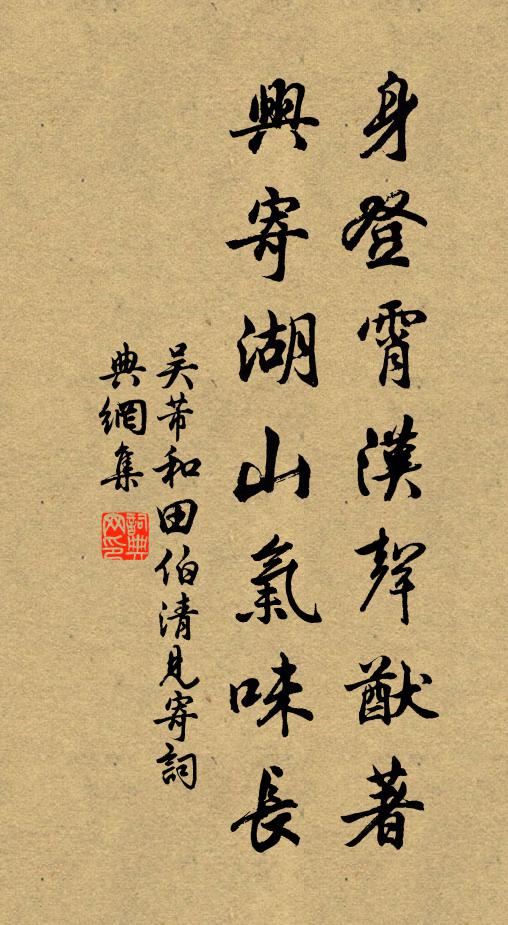 身登霄漢聲猷著
興寄湖山氣味長
吴芾和田伯清見寄詞
典網集
詞典
网印